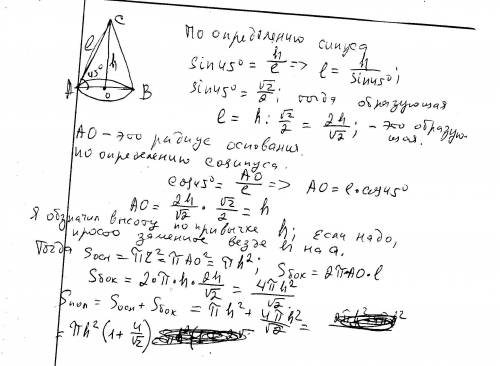 C
l
h
45°
A
O
B
По определению синуса
sin45° = h/l => l = h/sin45°;
sin45° = √2/2; тогда образующая
l = h : √2/2 = 2h/√2; - это образующая.
AO - это радиус основания.
По определению косинуса.
cos45° = AO/l => AO = l·cos45°
AO = 2h/√2 · √2/2 = h
Я обозначил высоту по привычке h; если надо,
просто замените везде h на a.
Тогда Sосн = πr² = πAO² = πh²; Sбок = 2πAO·l
Sбок = 2·π·h·2h/√2 = 4πh²/√2.
Sпол = Sосн + Sбок = πh² + 4πh²/√2 =
= πh²(1 + 4/√2)